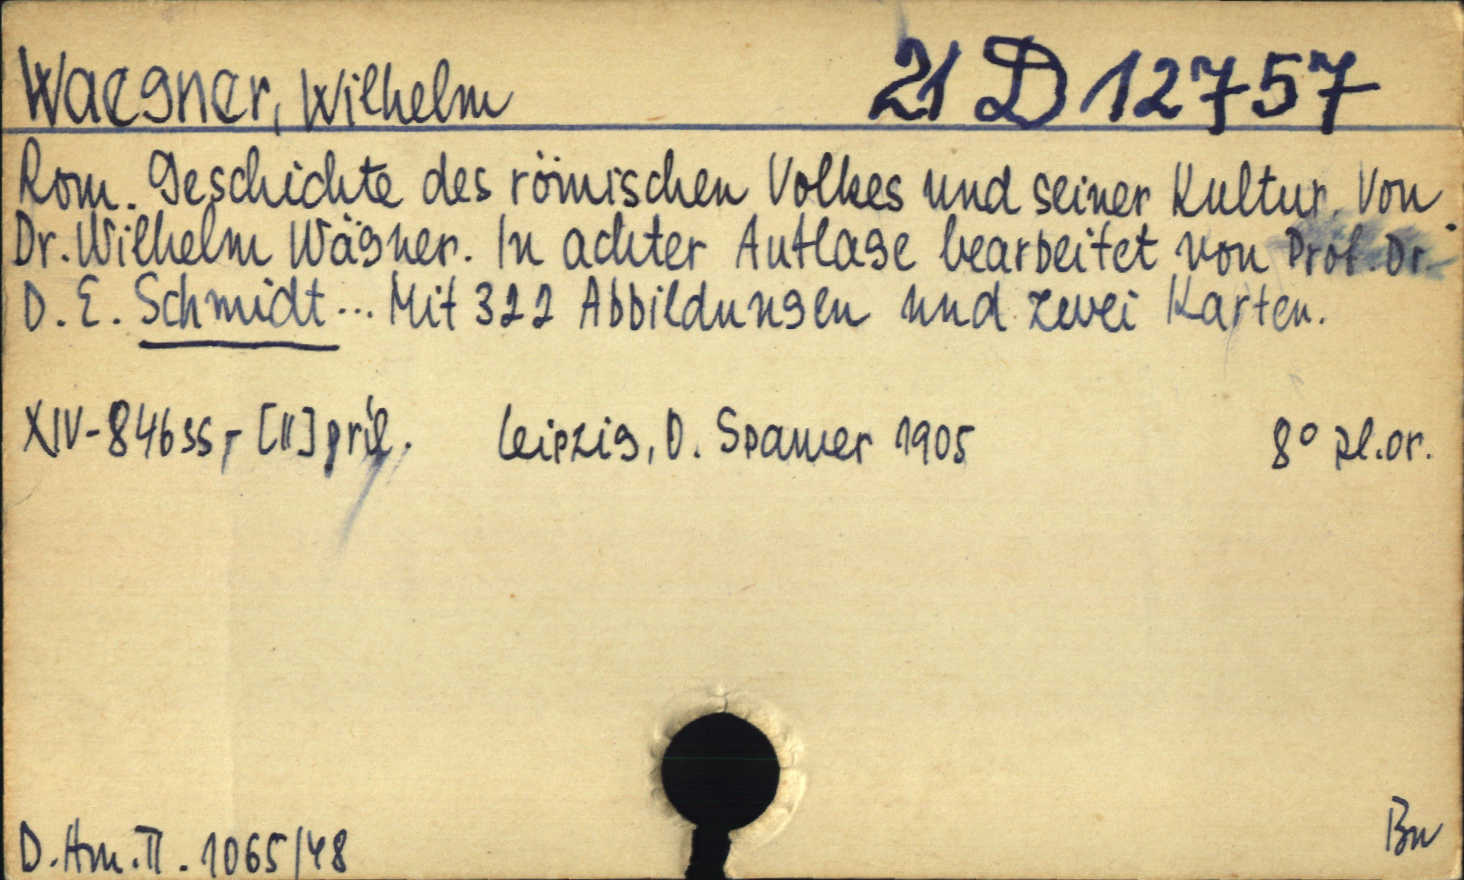 Waegner, Wilhelm 21 D 12757
Rom. Geschichte des römischen Volkes und seiner Kultur. Von
Dr. Wilhelm Wägner. In achter Auflage bearbeitet von Prof. Dr.
O. E. Schmidt... Mit 322 Abbildungen und zwei Karten.
XIV-846 ss, [II] pril. Leipzig, O. Spamer 1905 8° pl.or.
D. Hm. II. 1065/48 Bn